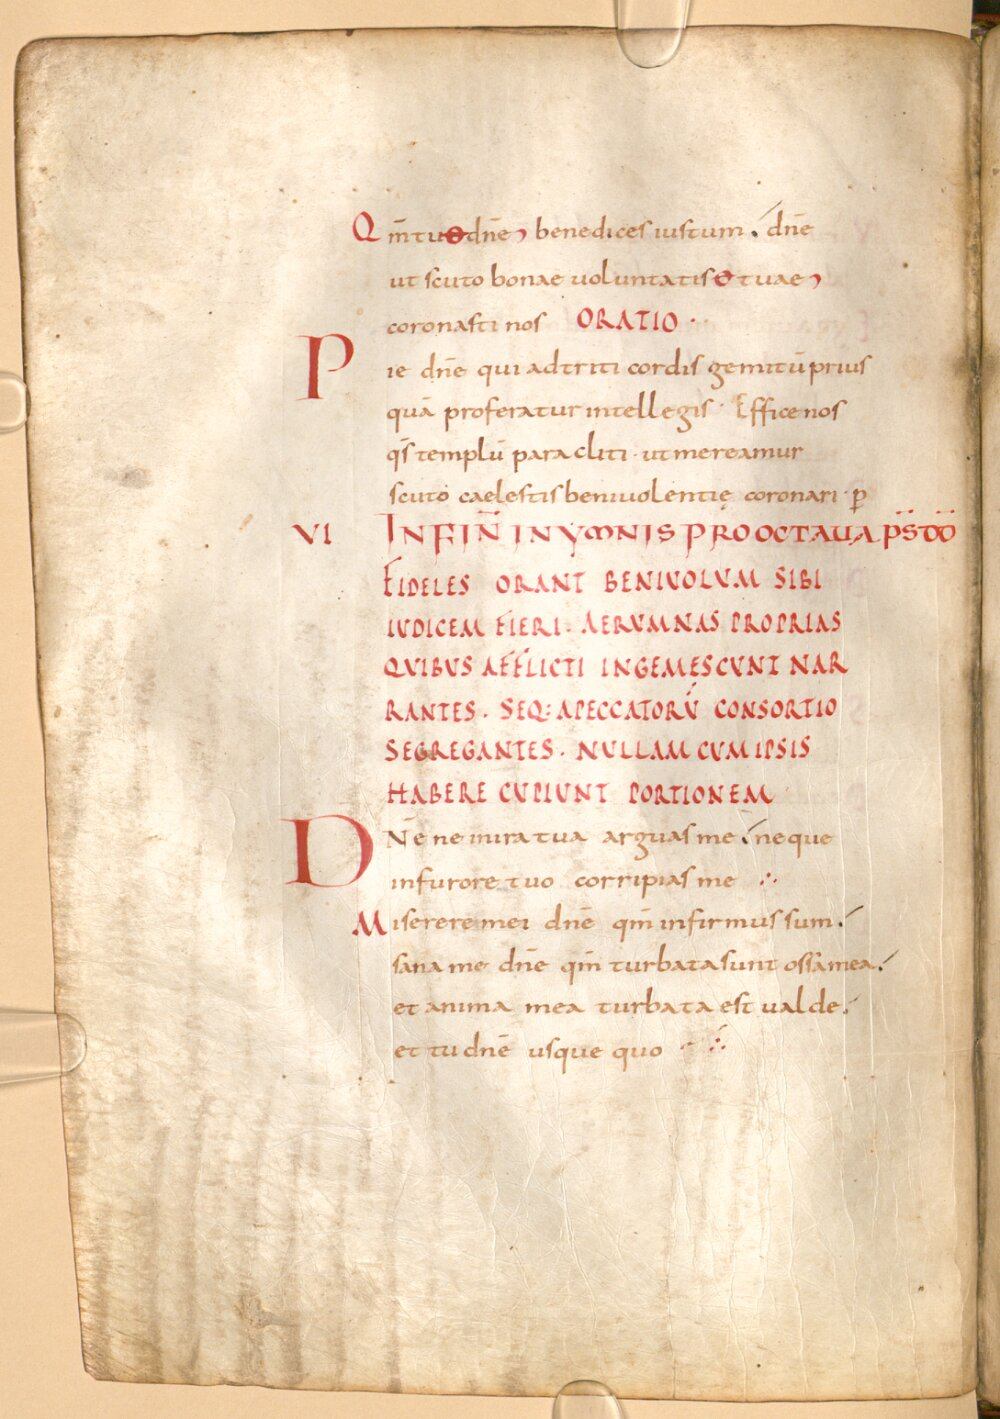 Qm̄ tu ɵ dn̄e benedices iustum. dn̄e
ut scuto bonae uoluntatis ɵ tuae
coronasti nos ORATIO ·
Pie dn̄e qui adtriti cordis gemitū prius
quā proferatur intellegis · Effice nos
qs̄ templū paracliti · ut mereamur
scuto caelestis beniuolentię coronari · p̄
VI IN FIN̄ IN YMNIS PRO OCTAUA PS̄ DD̄
FIDELES ORANT BENIUOLUM SIBI
IUDICEM FIERI · AERUMNAS PROPRIAS
QUIBUS AFFLICTI INGEMESCUNT NAR
RANTES · SEQ: A PECCATORŪ CONSORTIO
SEGREGANTES · NULLAM CUM IPSIS
HABERE CUPIUNT PORTIONEM
DN̄e ne in ira tua arguas me neque
in furore tuo corripias me
Miserere mei dn̄e qm̄ infirmus sum
sana me dn̄e qm̄ turbata sunt ossa mea
et anima mea turbata est ualde
et tu dn̄e usque quo